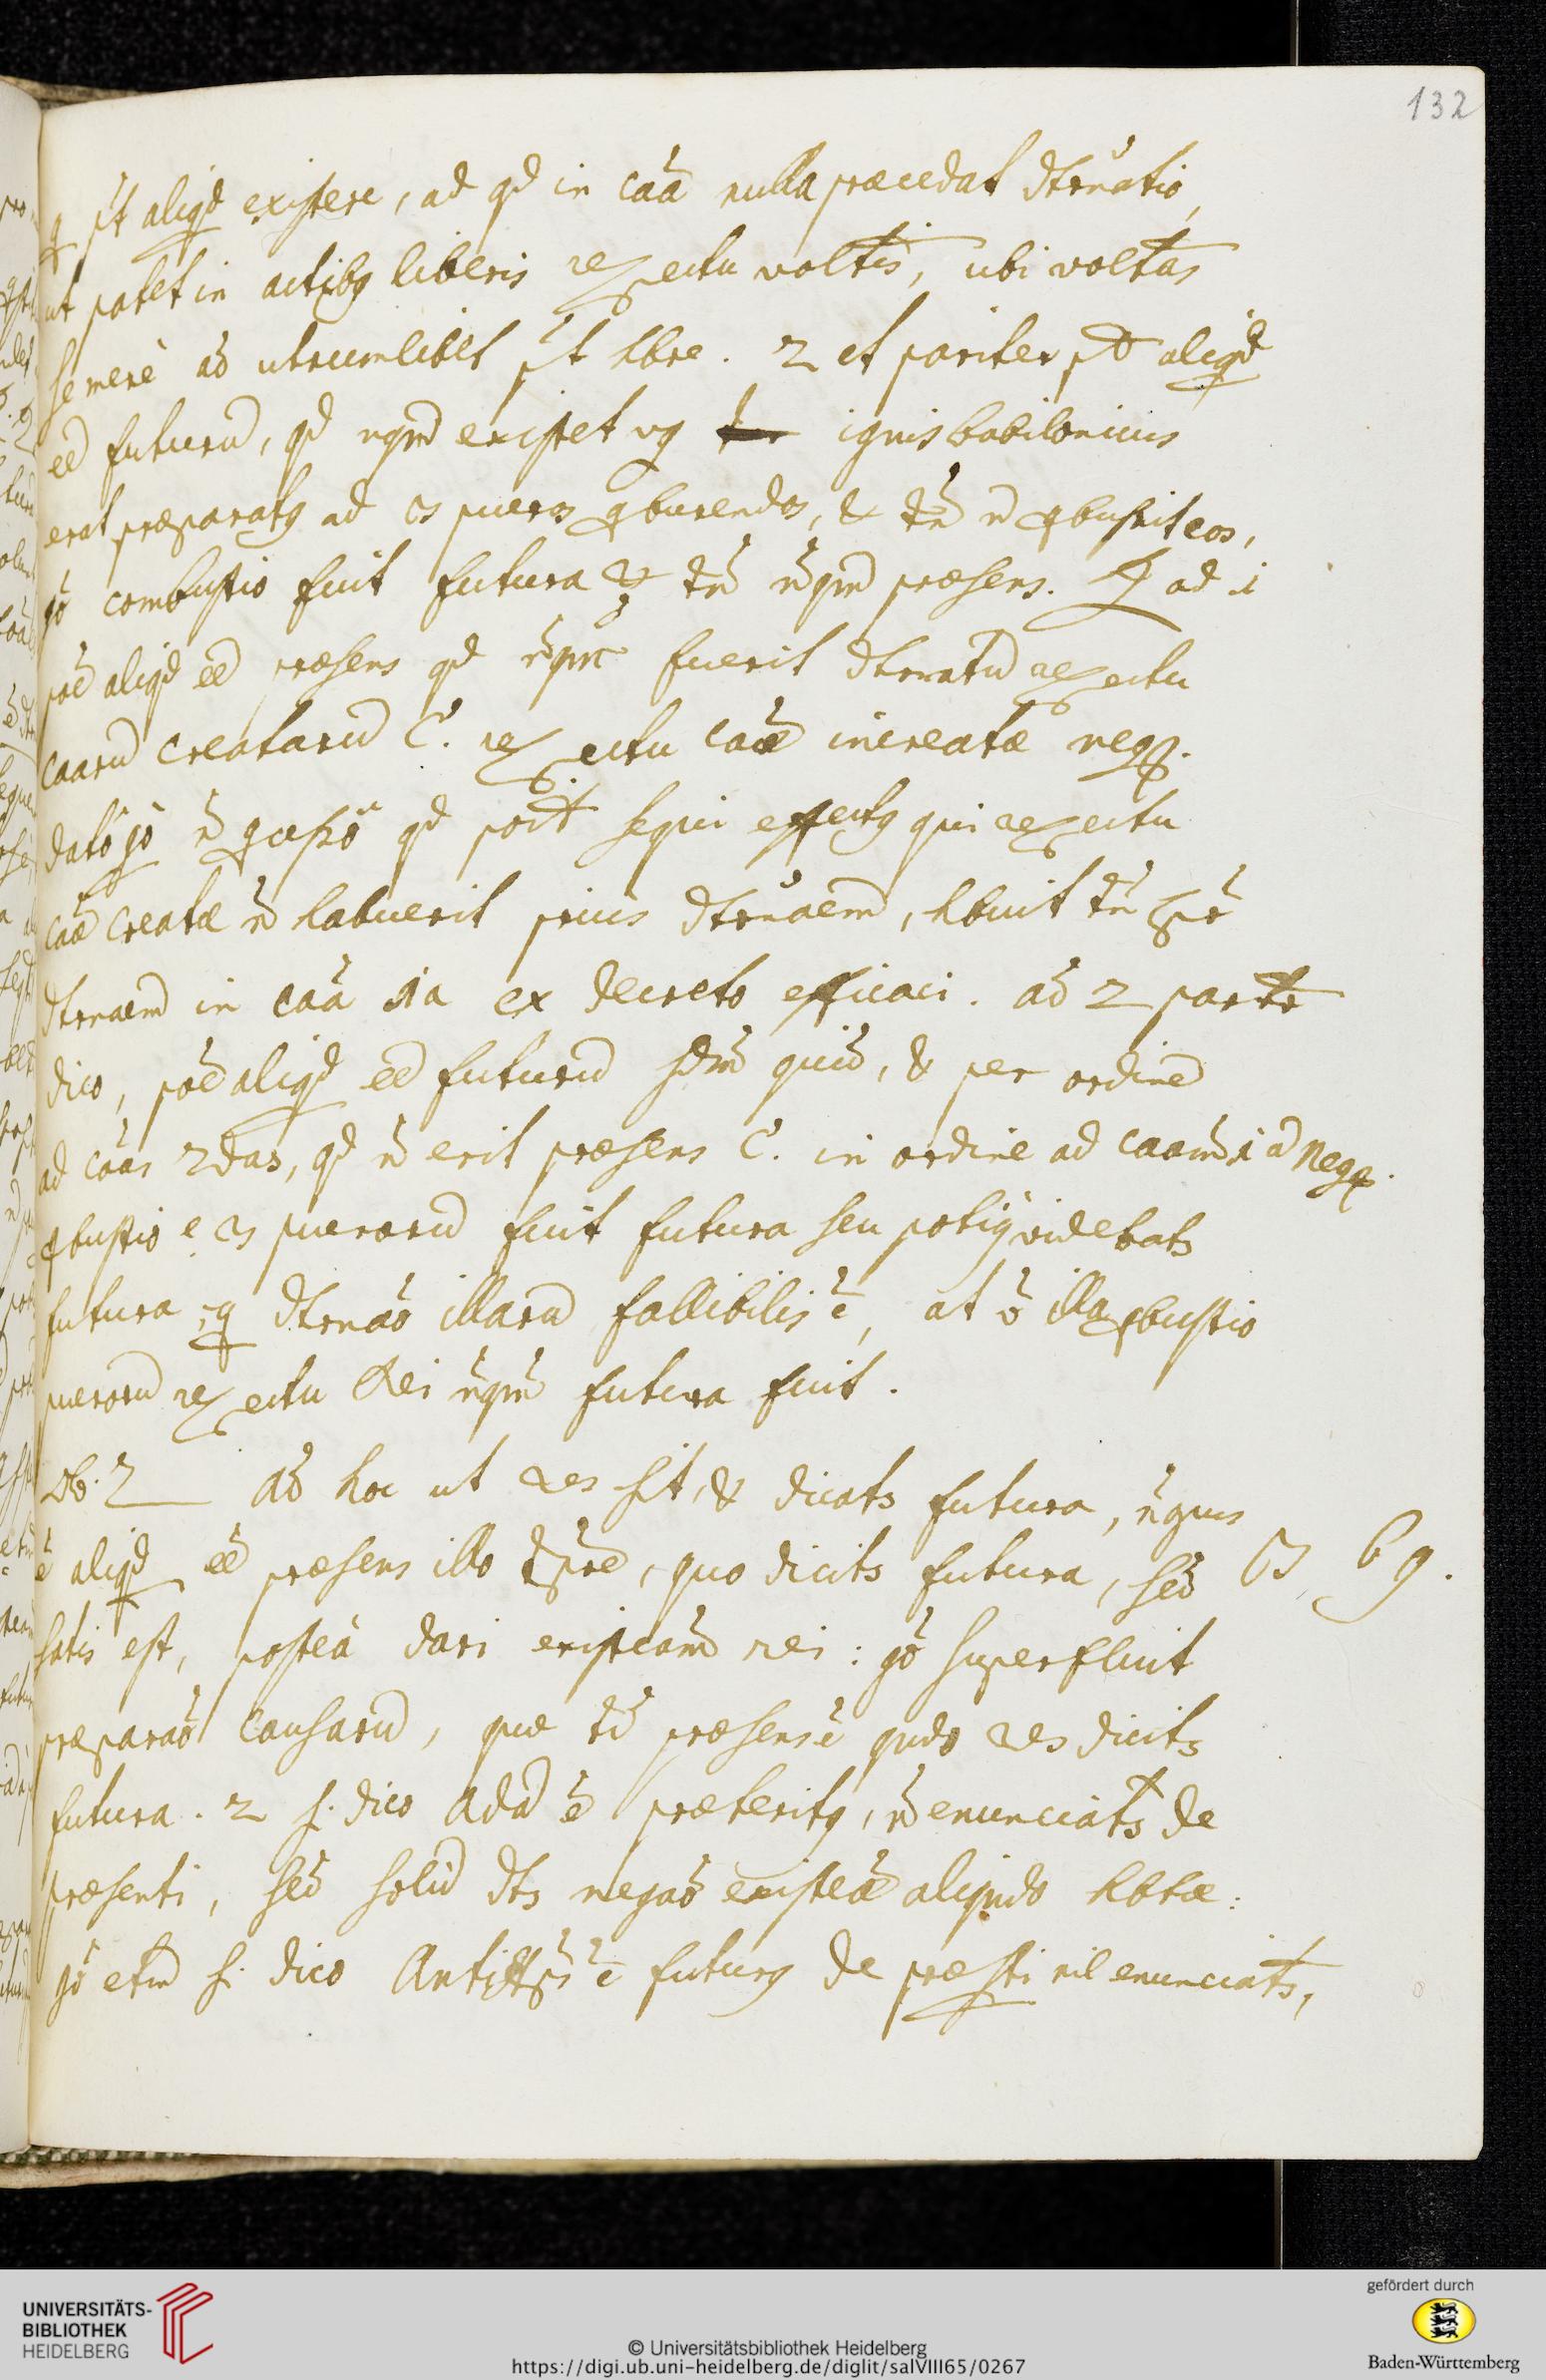 132
pt aliqd existere, ad qd in caã nulla præcedat dtrnatio,
ut patet in actibq liberis respectu voltis, ubi voltas
se mere ad utrumlibet pt hbre. 2 et pariter pt aliqd
eẽ futurũ, qd nqm existet vg ignis babilonicus
erat præparatq ad 3s pueros 9burendos, & tñ ñ 9bussit eos,
gõ combustio fuit futura & tñ nqm præsens. ad 1
põe aliqd eẽ præsens qd nqm fuerit dtrnatũ respectu
caarũ creatarũ respectu caæ increatæ neg.
dato gõ ñ 9cesso qd poit sequi effectq qui respectu
caæ creatæ ñ habuerit prius dtrnaem, hbuit tñ spr
dtrnaem in caã 1a ex decreto efficaci. ad 2 part
dico, põe aliqd eẽ futurũ sdm quid, & per ordinẽ
ad caas 2das, qd ñ erit præsens in ordine ad caam 1ã neg.
9bustio 3 puerorũ fuit futura seu potiq videbatr
futura, q dtrnao illarũ fallibilis ẽ, at õ illa 9bustio
puerorũ respectu Dei nqm futura fuit.
Ob. 2 ad hoc ut res sit, & dicatr futura, ñ opus
ẽ aliqd eẽ præsens illo tpre, quo dicitr futura, sed
satis est, postea dari existeam rei: gõ superfluit
præparao causarũ, quæ præsens ẽ qndo res dicitr
futura. 2 si dico Adã ẽ præteritq, ñ enunciatr de
præsenti, sed solũ dtr negao existeæ aliqndo hbtæ:
gõ etm si dico Antixtps ẽ futurq de præsti nil enunciatr,
UNIVERSITÄTS-
BIBLIOTHEK
HEIDELBERG
© Universitätsbibliothek Heidelberg
https://digi.ub.uni-heidelberg.de/diglit/salVIII65/0267
gefördert durch
Baden-Württemberg